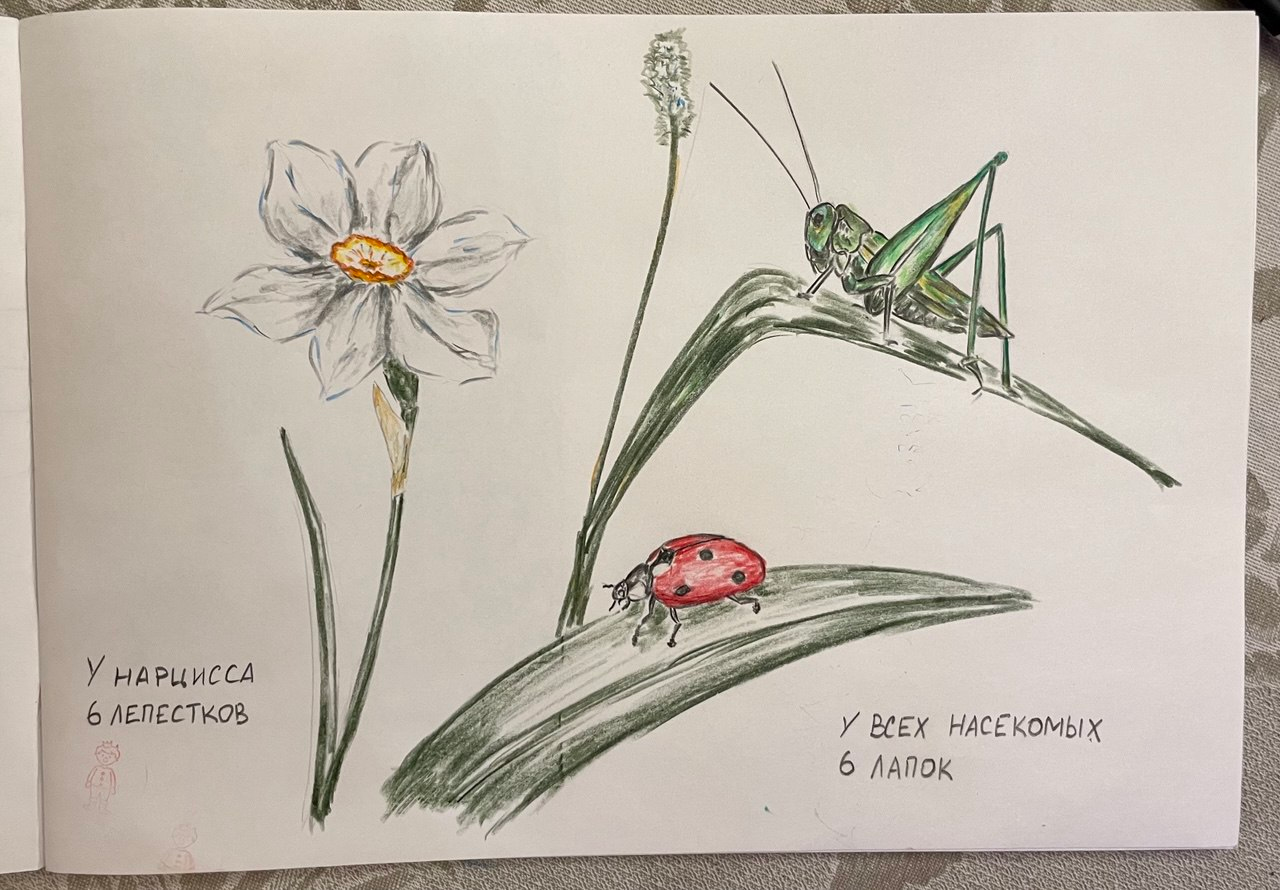 У НАРЦИССА
6 ЛЕПЕСТКОВ
У ВСЕХ НАСЕКОМЫХ
6 ЛАПОК